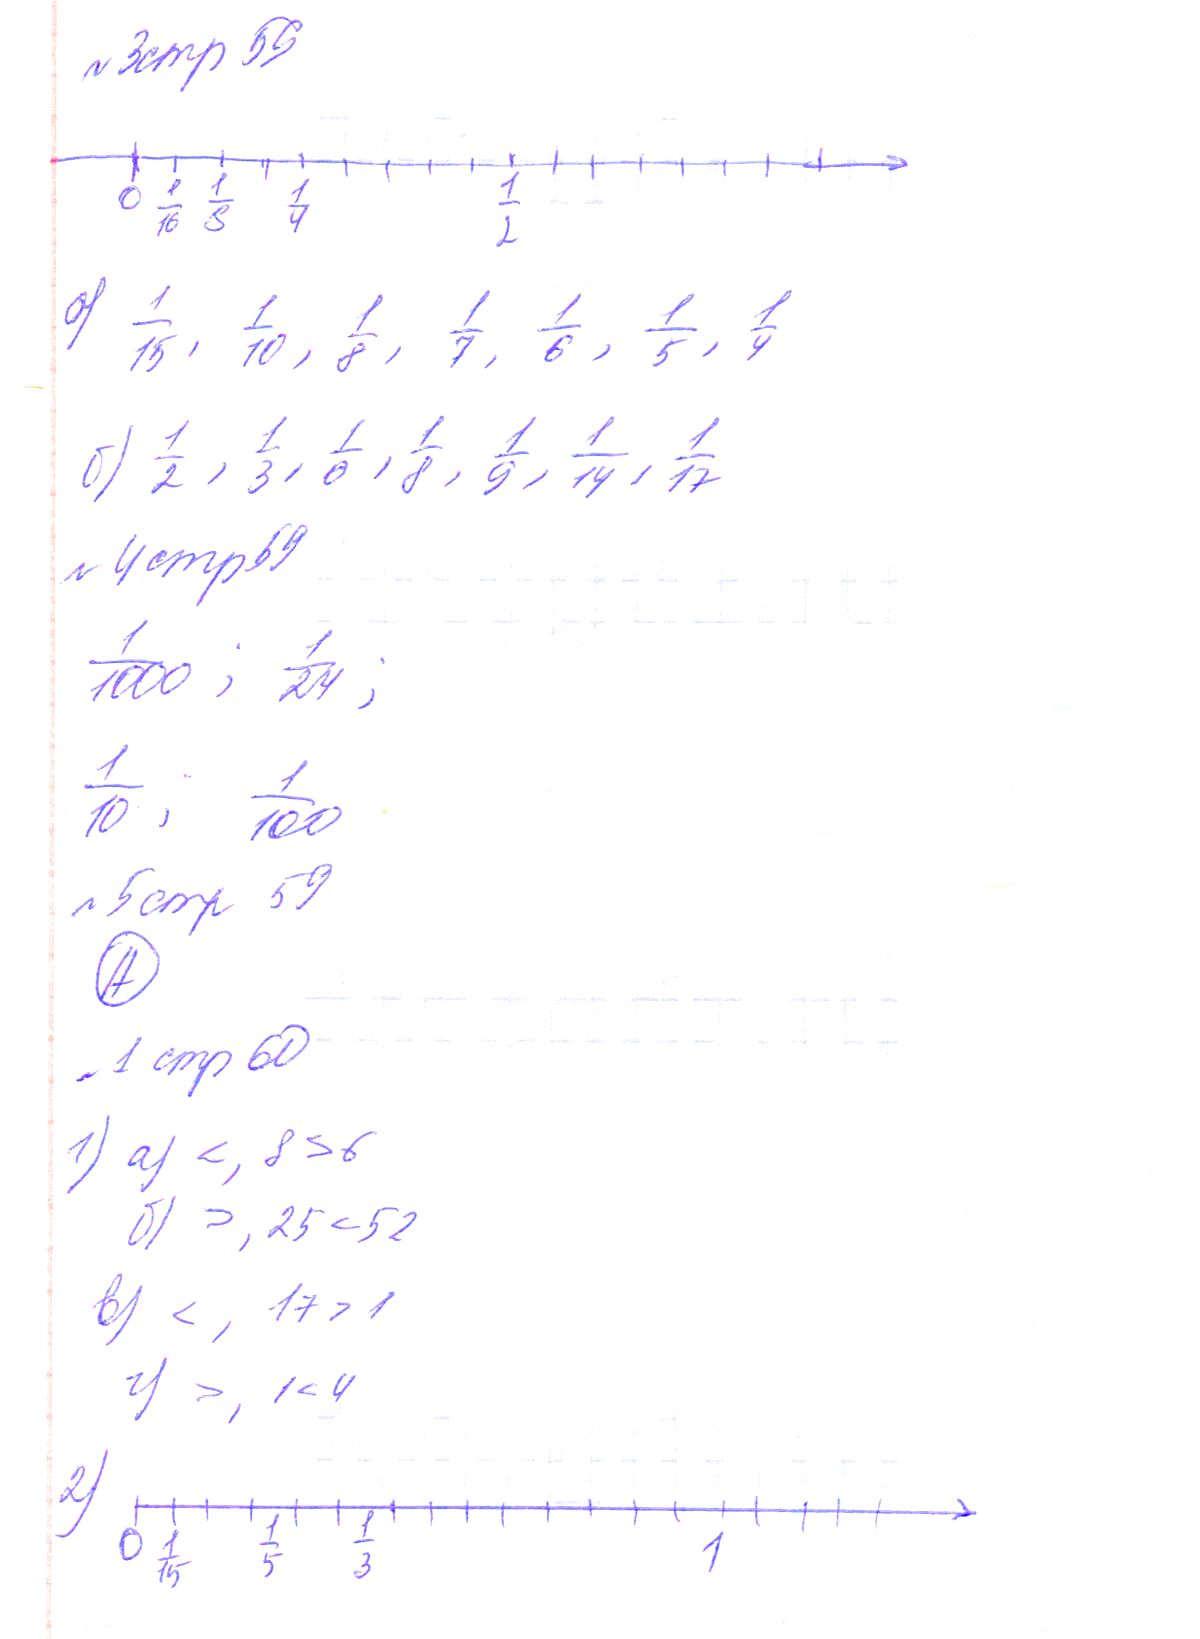 №3 стр 59
0 1/16 1/8 1/4 1/2
а) 1/15, 1/10, 1/8, 1/7, 1/6, 1/5, 1/4
б) 1/2, 1/3, 1/6, 1/8, 1/9, 1/14, 1/17
№4 стр 59
1/1000; 1/24;
1/10; 1/100
№5 стр 59
А
№1 стр 60
1) а) <, 8>6
б) >, 25<52
в) <, 17>1
г) >, 1<4
2)
0 1/15 1/5 1/3 1